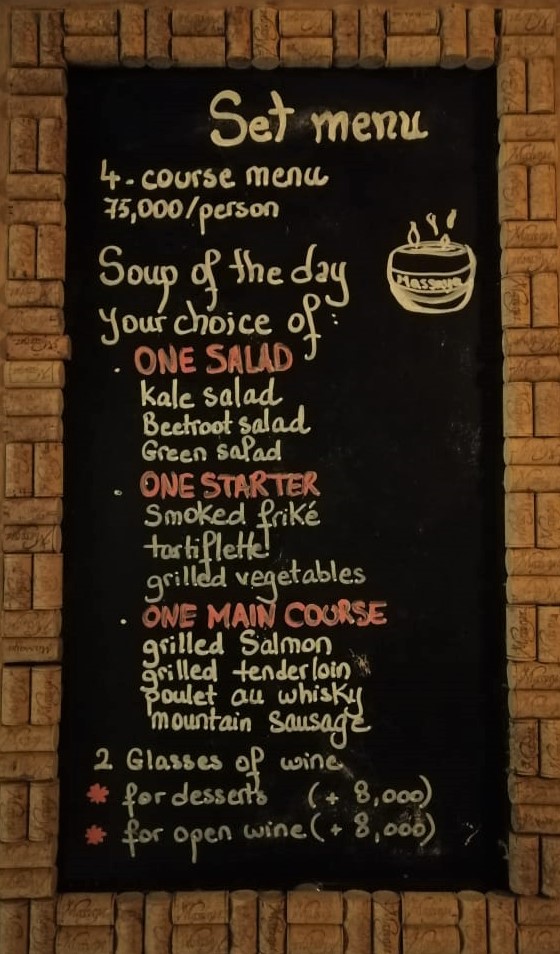 Set menu
4-course menu
75,000/person
Massaya
Soup of the day
Your choice of :
. ONE SALAD
kale salad
Beetroot salad
Green salad
. ONE STARTER
Smoked friké
tartiflette
grilled vegetables
. ONE MAIN COURSE
grilled Salmon
grilled tenderloin
poulet au whisky
mountain sausage
2 Glasses of wine
* for desserts (+ 8,000)
* for open wine (+ 8,000)